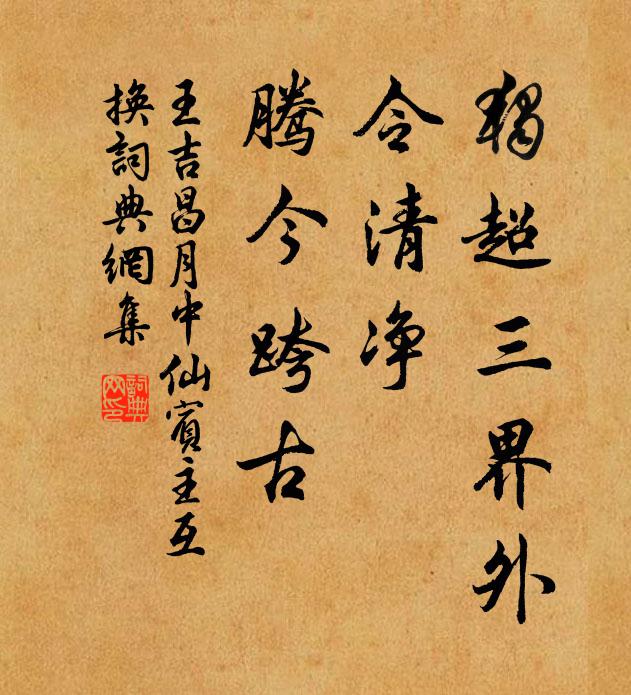 独超三界外
令清净
腾今跨古
王吉昌月中仙宾主互
换词典網集
词典
网印